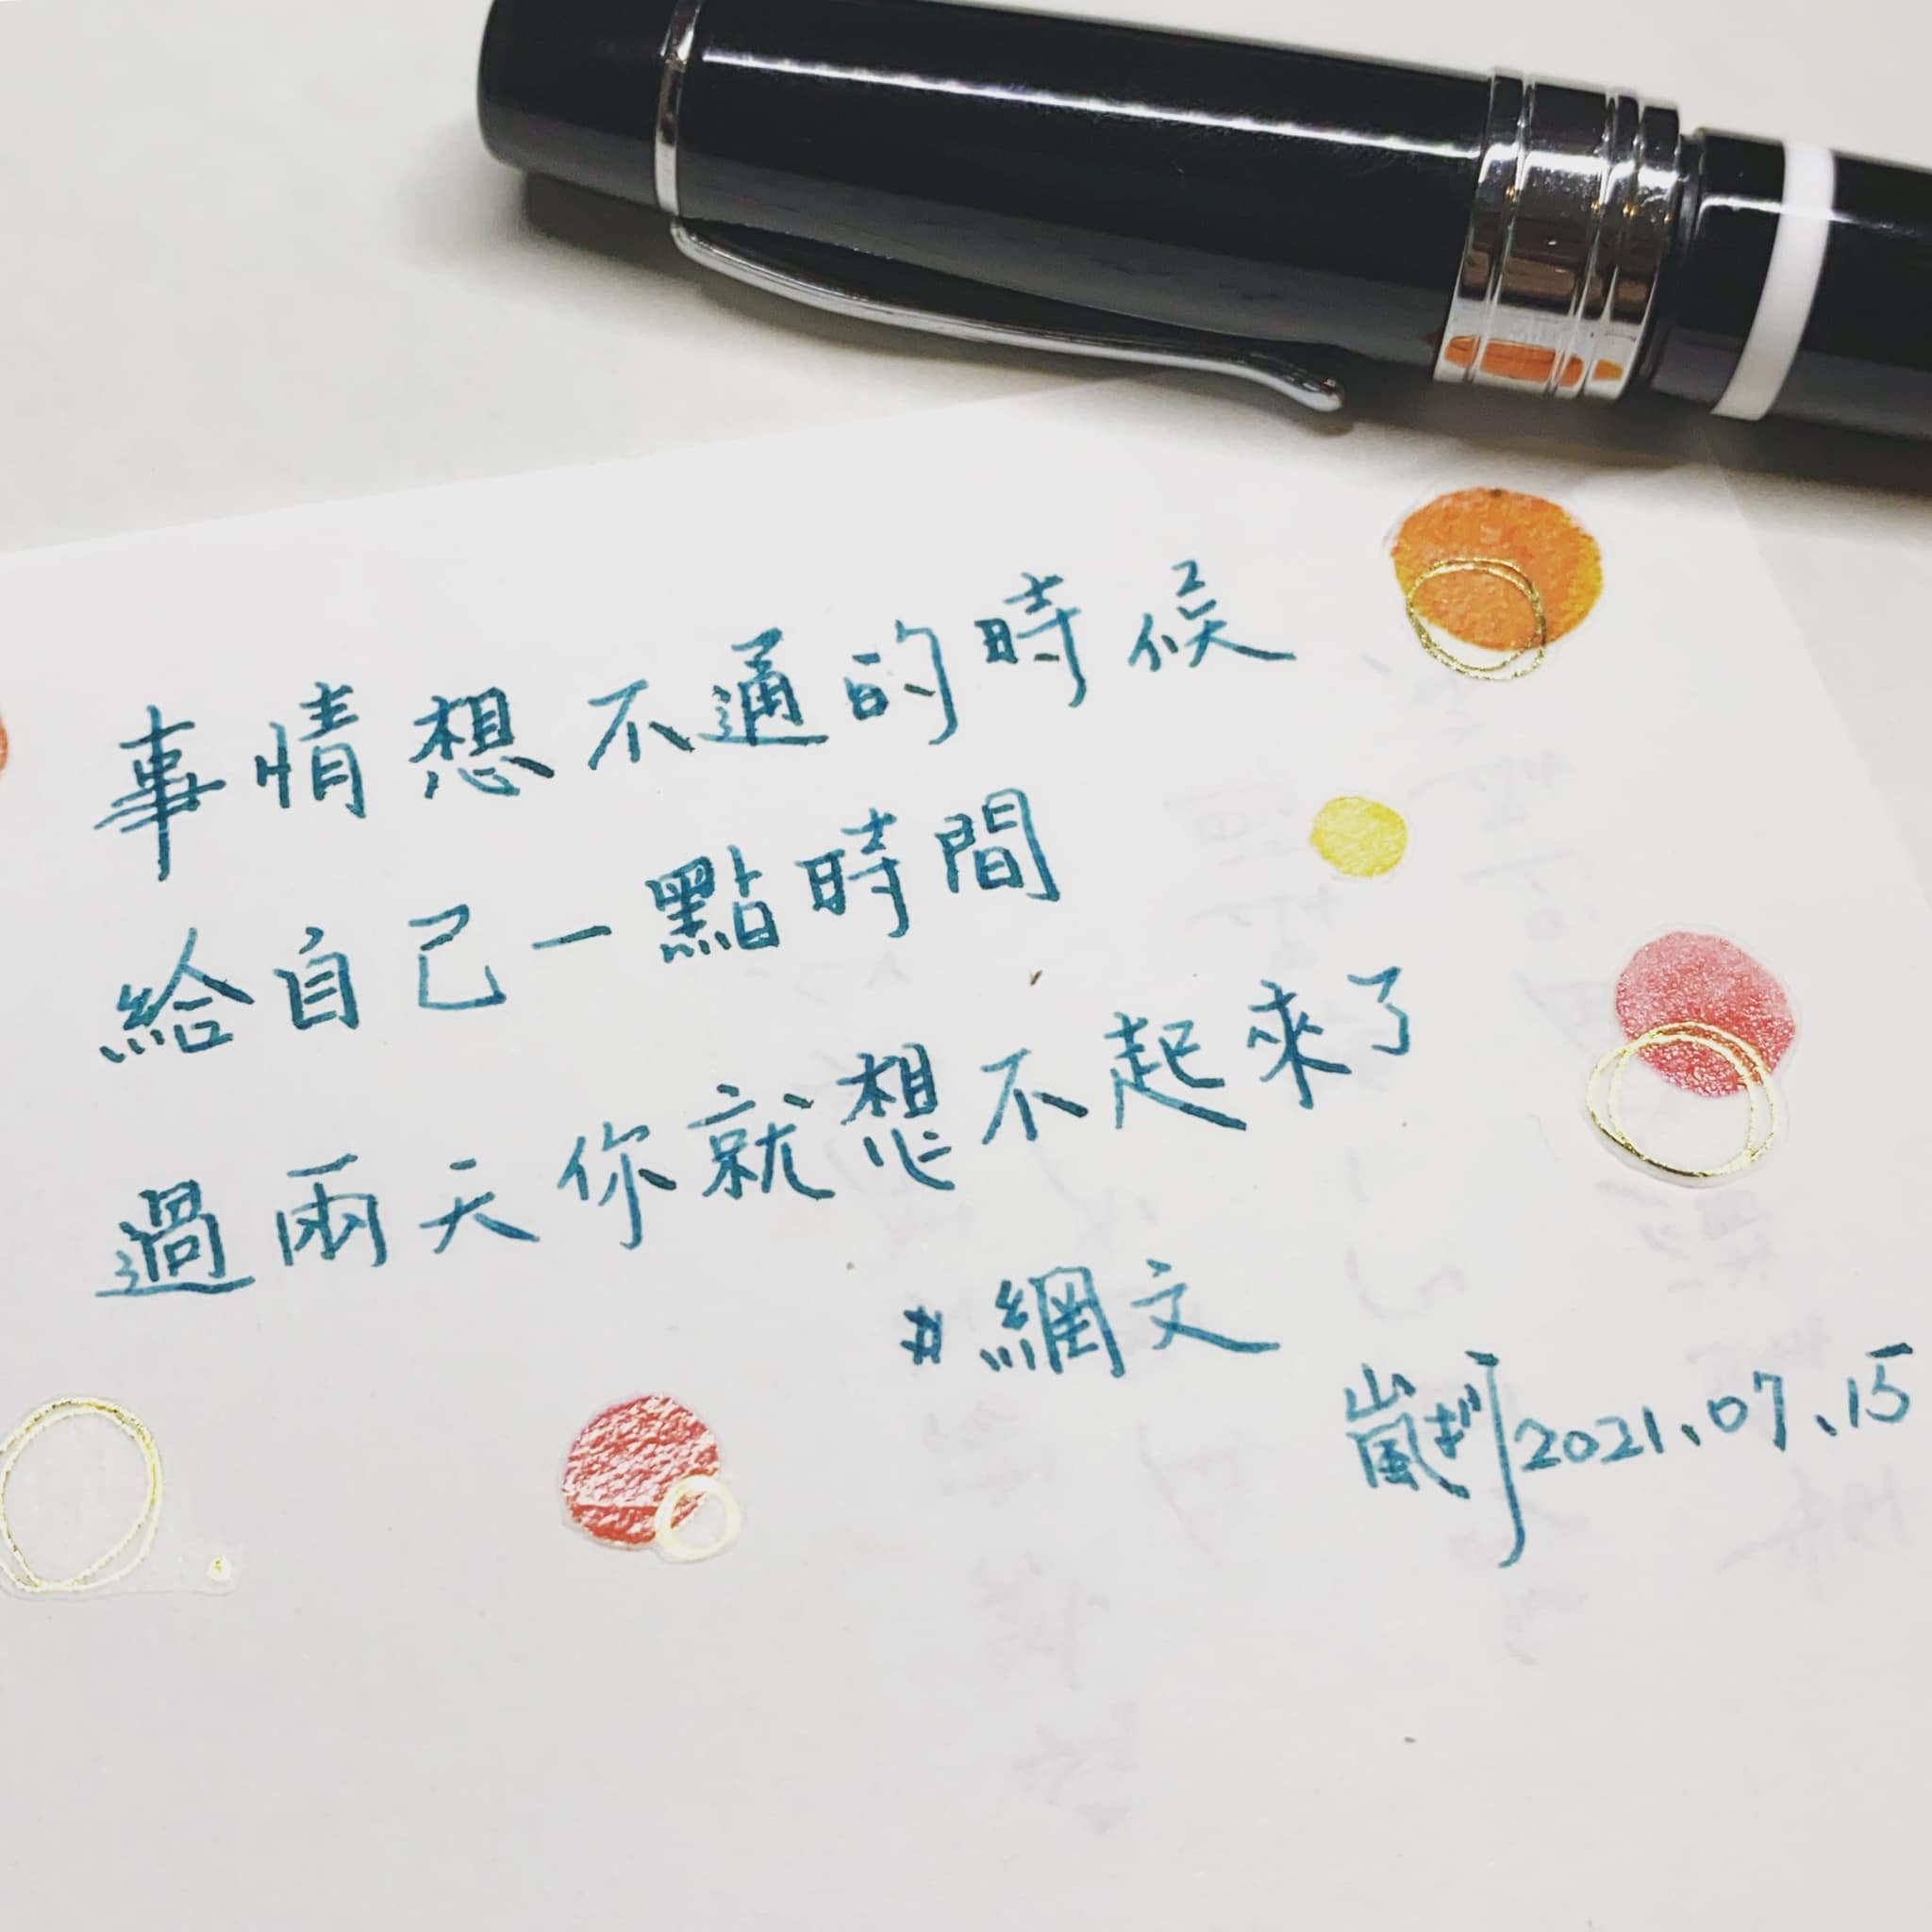 事情想不通的時候
給自己一點時間
過兩天你就想不起來了
#網文
2021.07.15